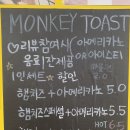 MONKEY TOAST
♡리뷰참여시 아메리카노
음료 간제공 OR 아이스티
1인세트 할인
햄치즈 + 아메리카노 5.0
햄치즈스페셜 + 아메리카노 5.5
HOT 6.5